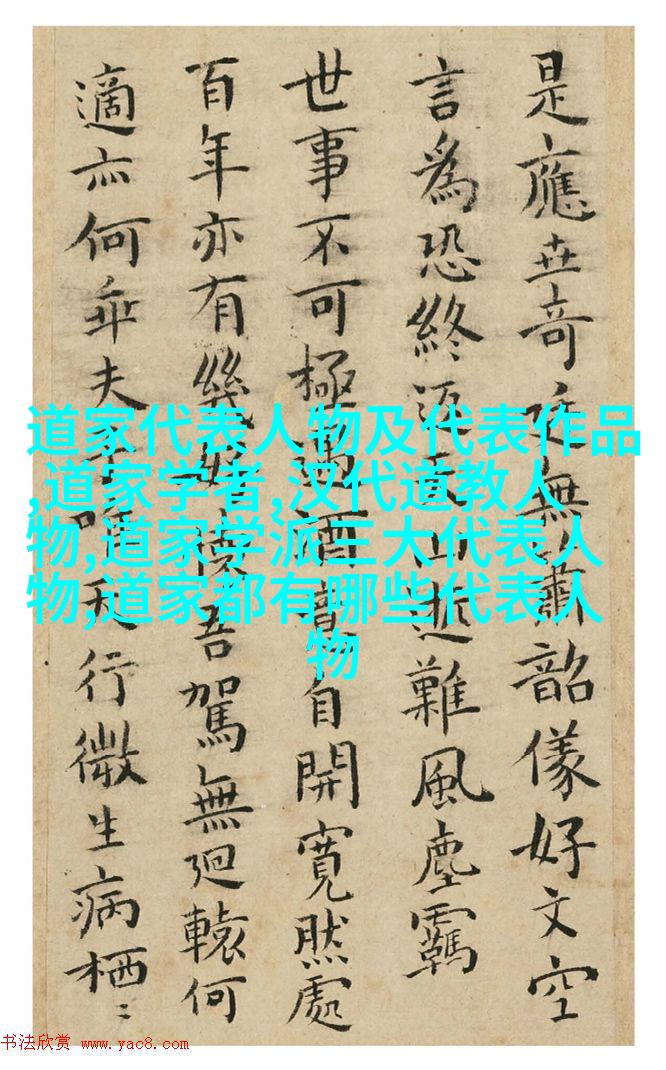 是應世奇無蕭韶儀好文空
言爲恐終山逝難風塵羈
世事不可極遇酒意自開寬然處
百年亦有幾吾駕無迴轅何
適亦何乖夫行微生病栖〻
道家代表人物及代表作品
,道家学者,汉代道教人
物,道家学派三大代表人
物,道家都有哪些代表人
物
书法欣赏 www.yac8.com